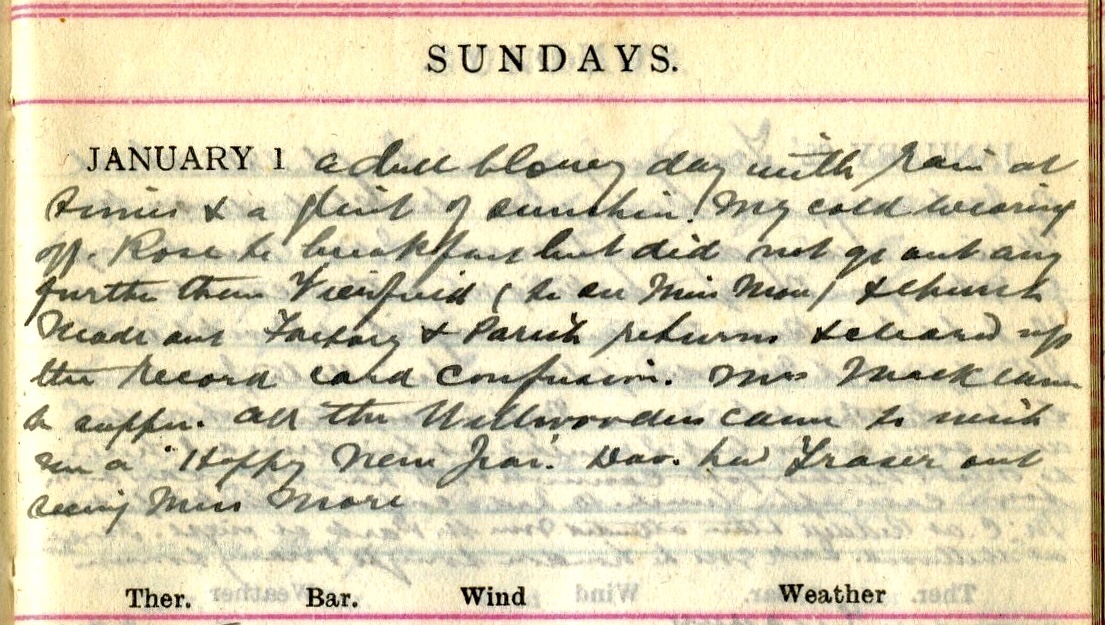 SUNDAYS.
JANUARY 1 a dull blowy day with rain at
times & a glint of sunshin. My cold wearing
off. Rose to breakfast but did not go out any
further than Viewfield (to see Miss More) & church
Made out Factory & Parish returns & cleared up
the record card confusion. Mrs Mack came
to supper. All the Wellwooders came to wish
me a "Happy New Year". Dav. had Fraser out
seeing Miss More
Ther. Bar. Wind Weather